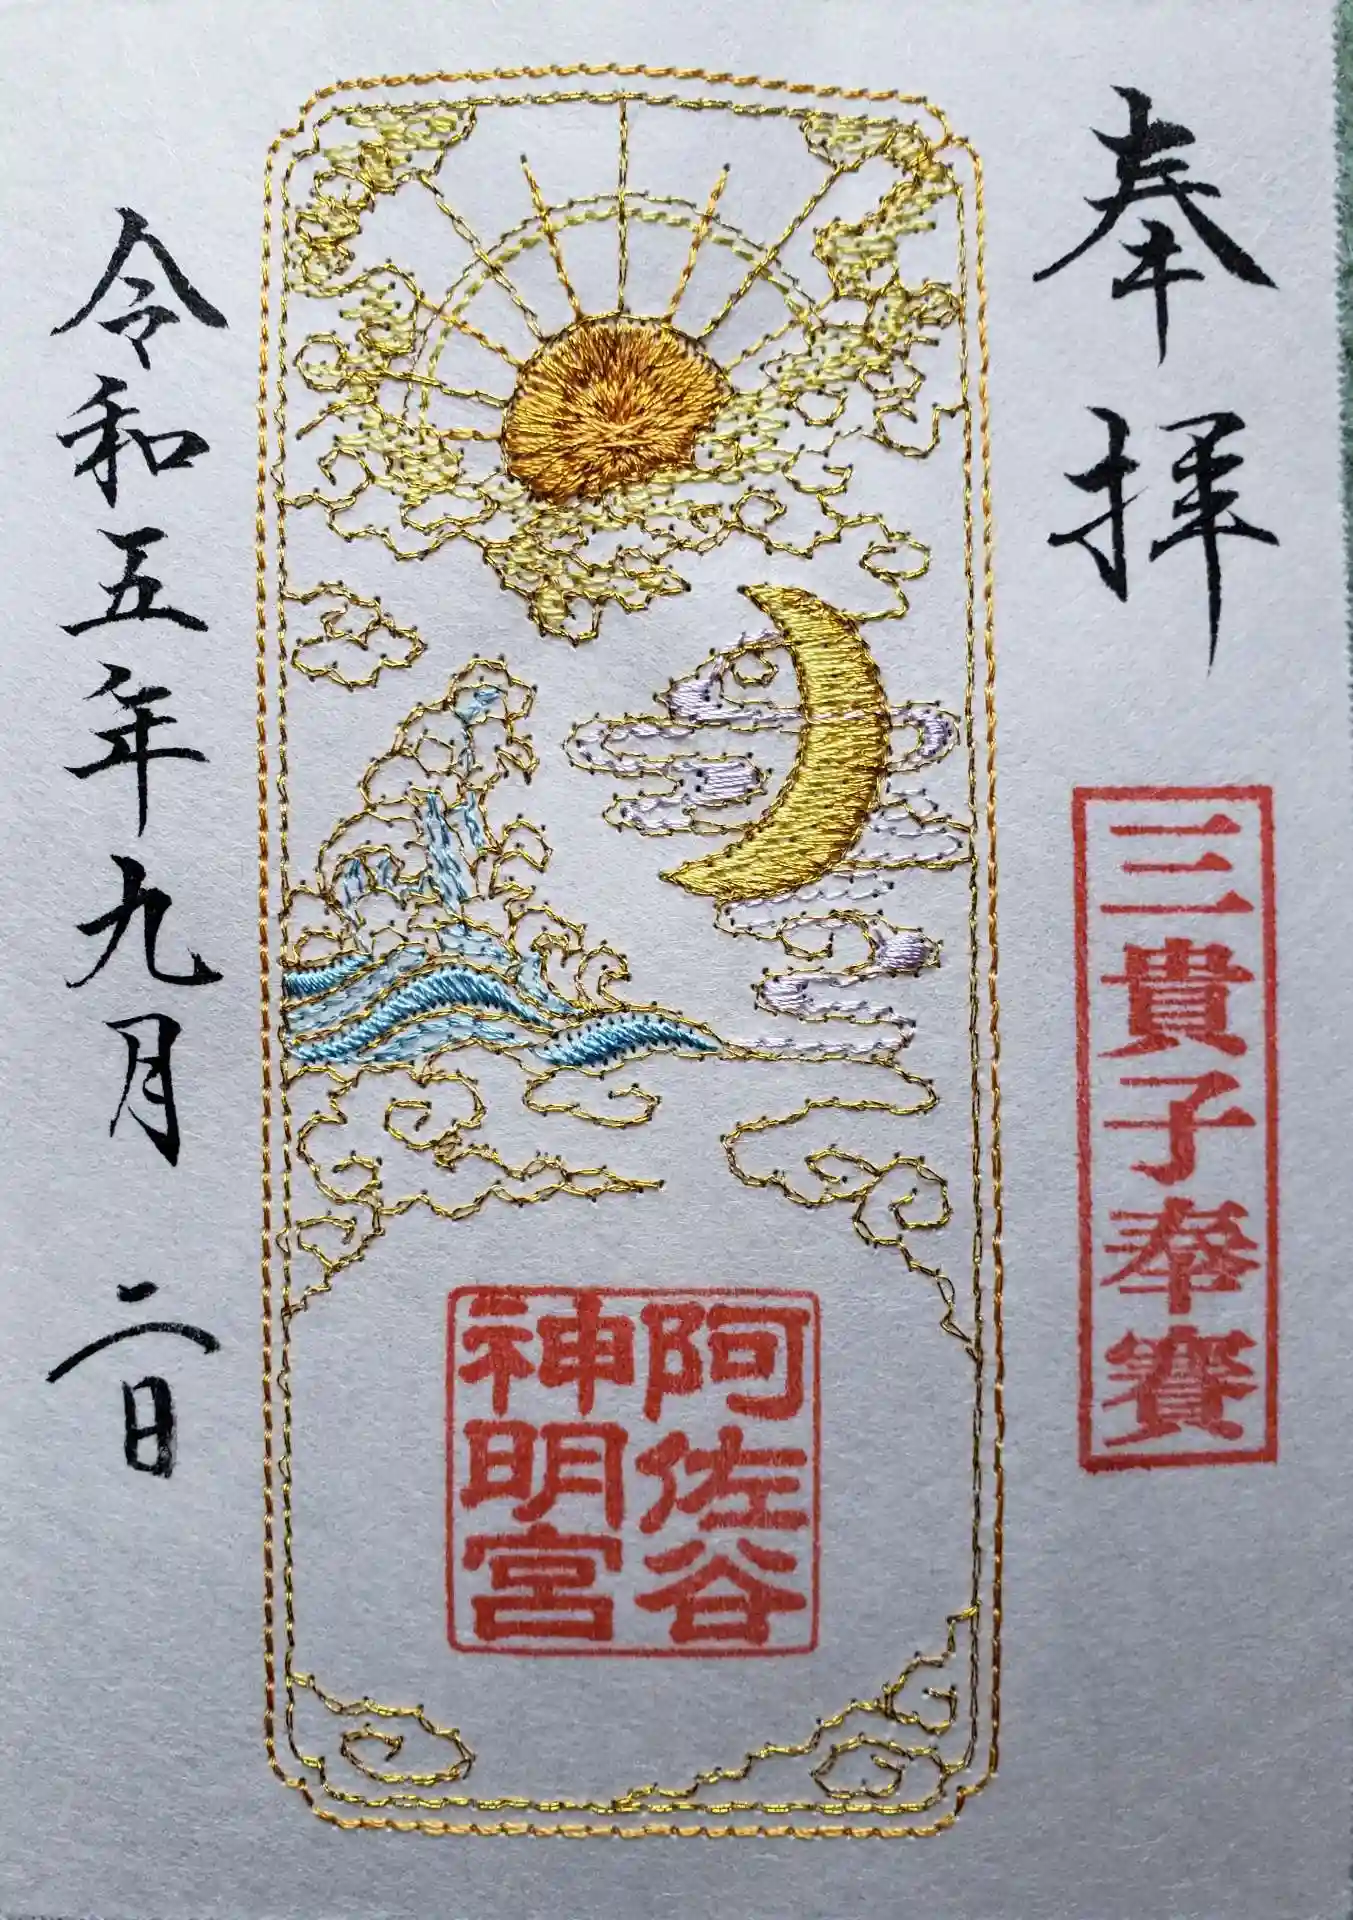 奉拝
三貴子奉賽
阿佐谷
神明宮
令和五年九月二日